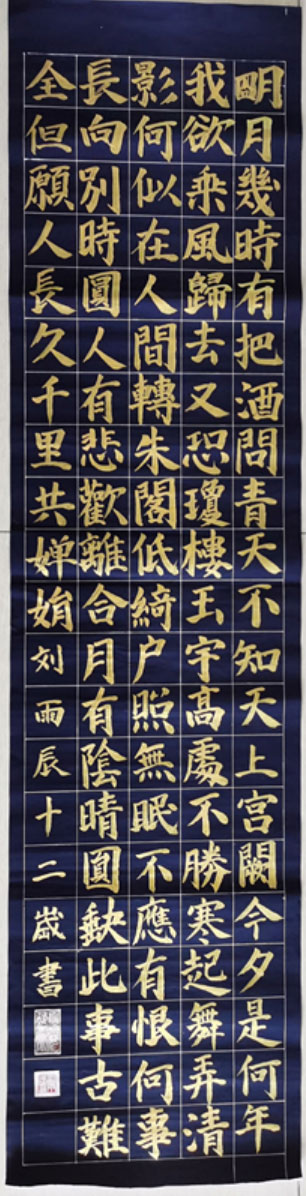 明月幾時有把酒問青天不知天上宮闕今夕是何年
我欲乘風歸去又恐瓊樓玉宇高處不勝寒起舞弄清
影何似在人間轉朱閣低綺户照無眠不應有恨何事
長向別時圓人有悲歡離合月有陰晴圓缺此事古難
全但願人長久千里共嬋娟刘雨辰十二歲書